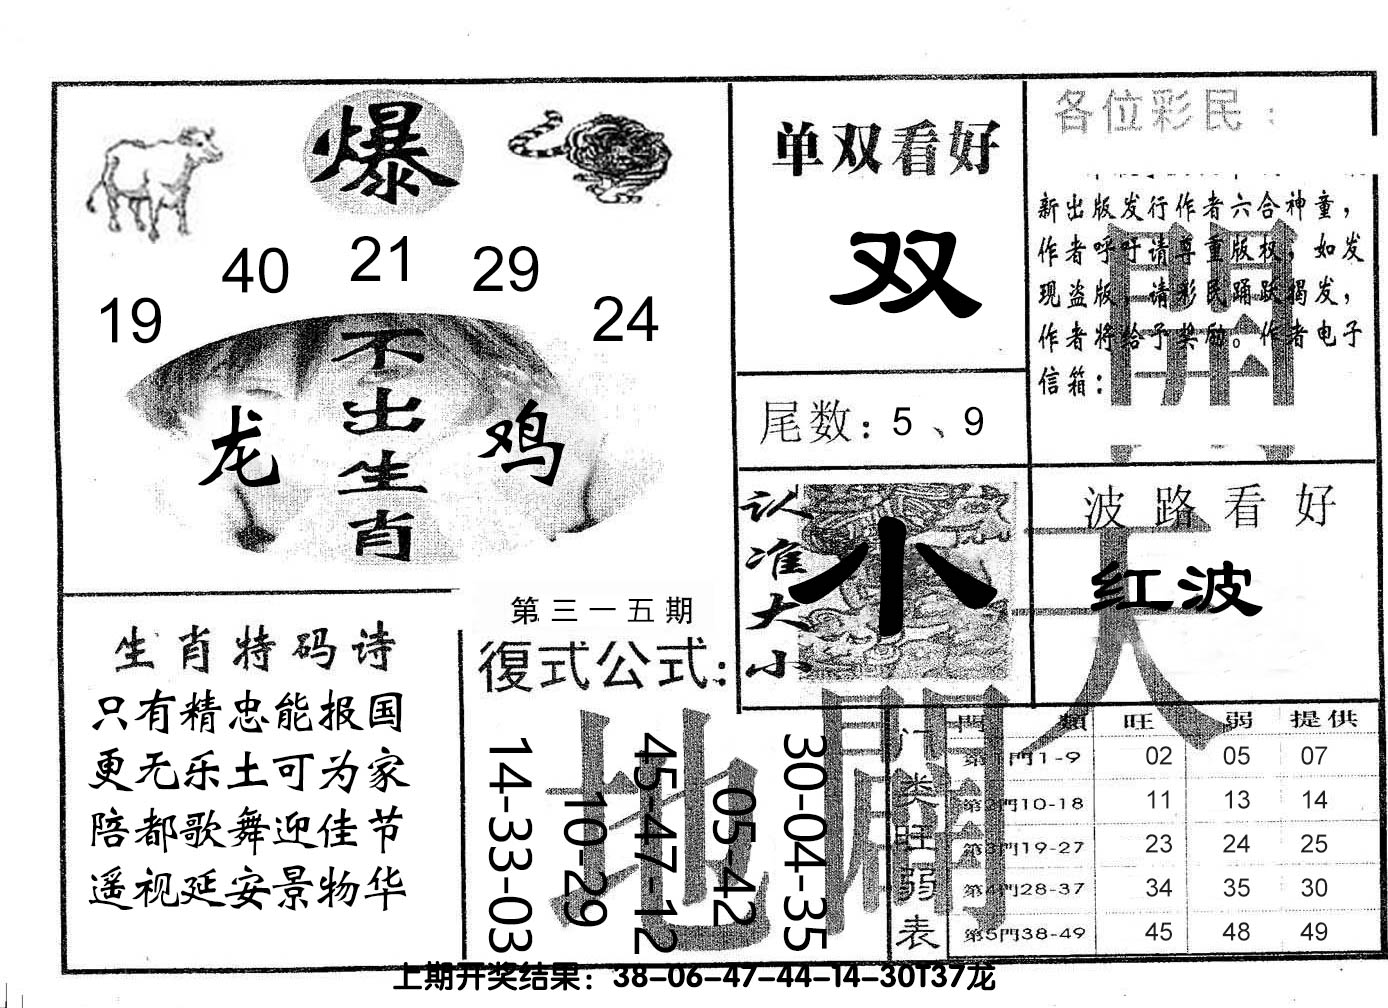 爆
19 40 21 29 24
不出生肖
龙 鸡
单双看好
双
尾数：5、9
各位彩民：
新出版发行作者六合神童，
作者呼吁请尊重版权，如发
现盗版，请彩民踊跃揭发，
作者将给予奖励。作者电子
信箱：
認准大小
小
波路看好
红波
生肖特码诗
只有精忠能报国
更无乐土可为家
陪都歌舞迎佳节
遥视延安景物华
第三一五期
復式公式：
14-33-03
10-29
45-47-12
05-42
30-04-35
天
地
開
門类旺弱表
門類 旺 弱 提供
第1門1-9 02 05 07
第2門10-18 11 13 14
第3門19-27 23 24 25
第4門28-37 34 35 30
第5門38-49 45 48 49
上期开奖结果：38-06-47-44-14-30T37龙